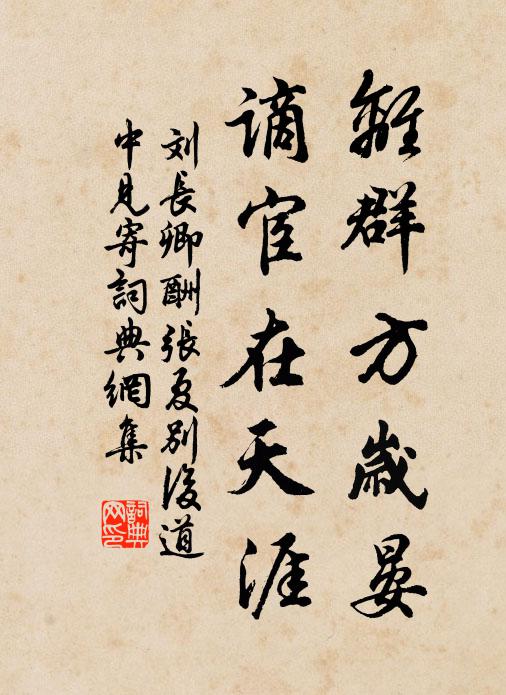 離群方歲晏
謫宦在天涯
刘長卿酬張夏別後道
中見寄詞典網集
詞典
网印